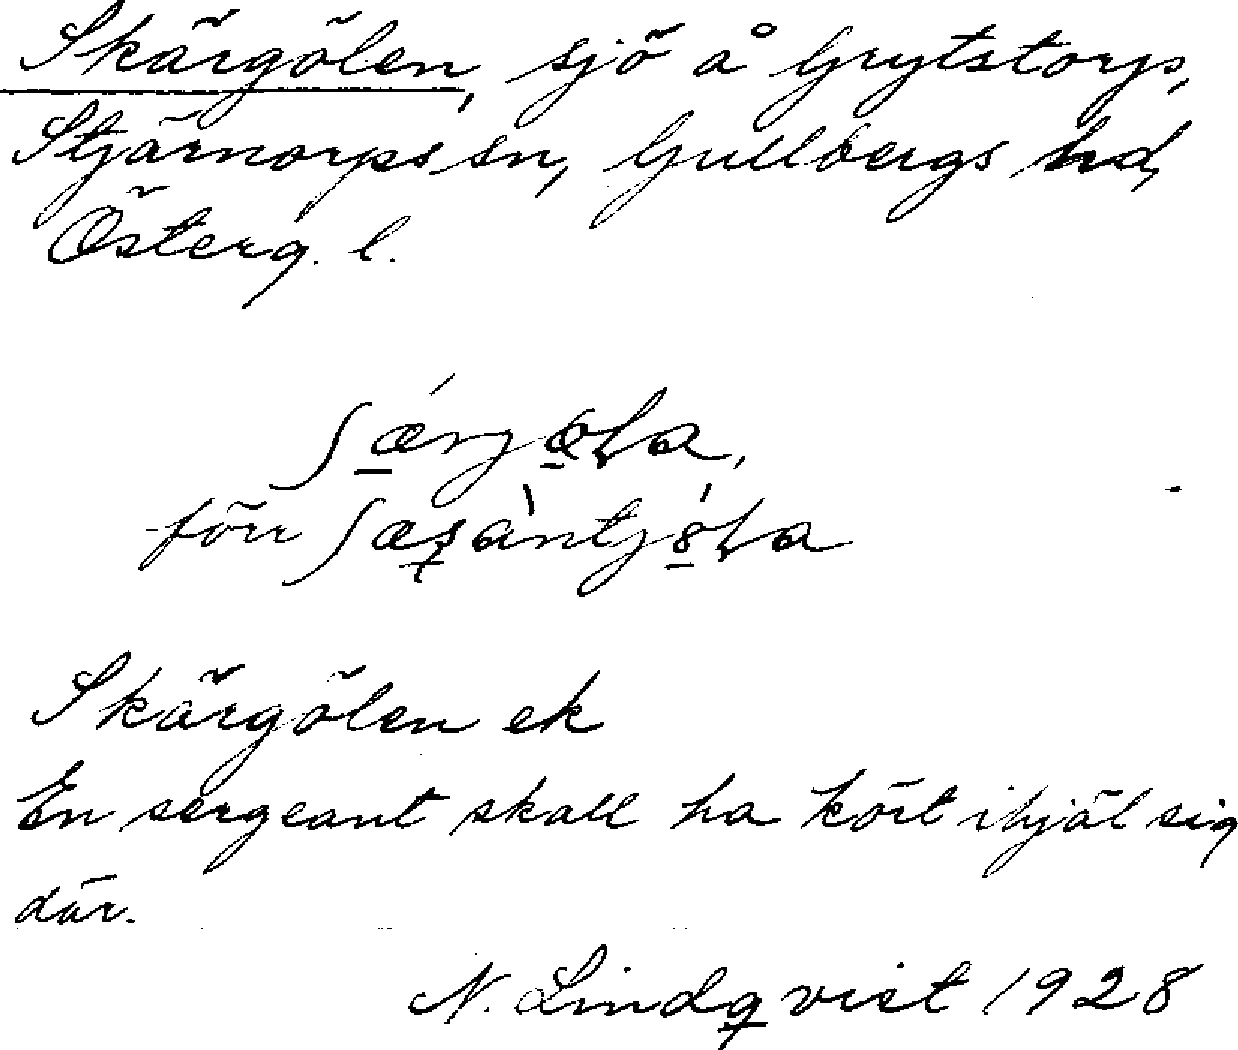 Skärgölen, sjö å Grytstorp,
Stjärnorps sn, Gullbergs hd,
Österg. l.
förr
Skärgölen ek
En sergeant skall ha kört ihjäl sig
där.
N. Lindqvist 1928